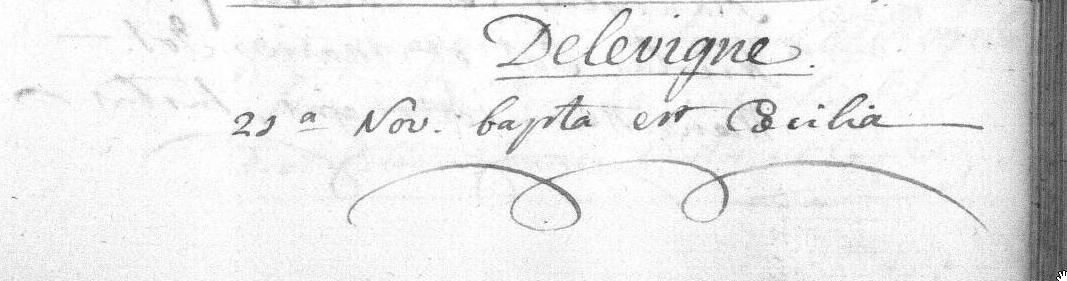 Delevigne.
21ª Nov. bapta est Cæcilia